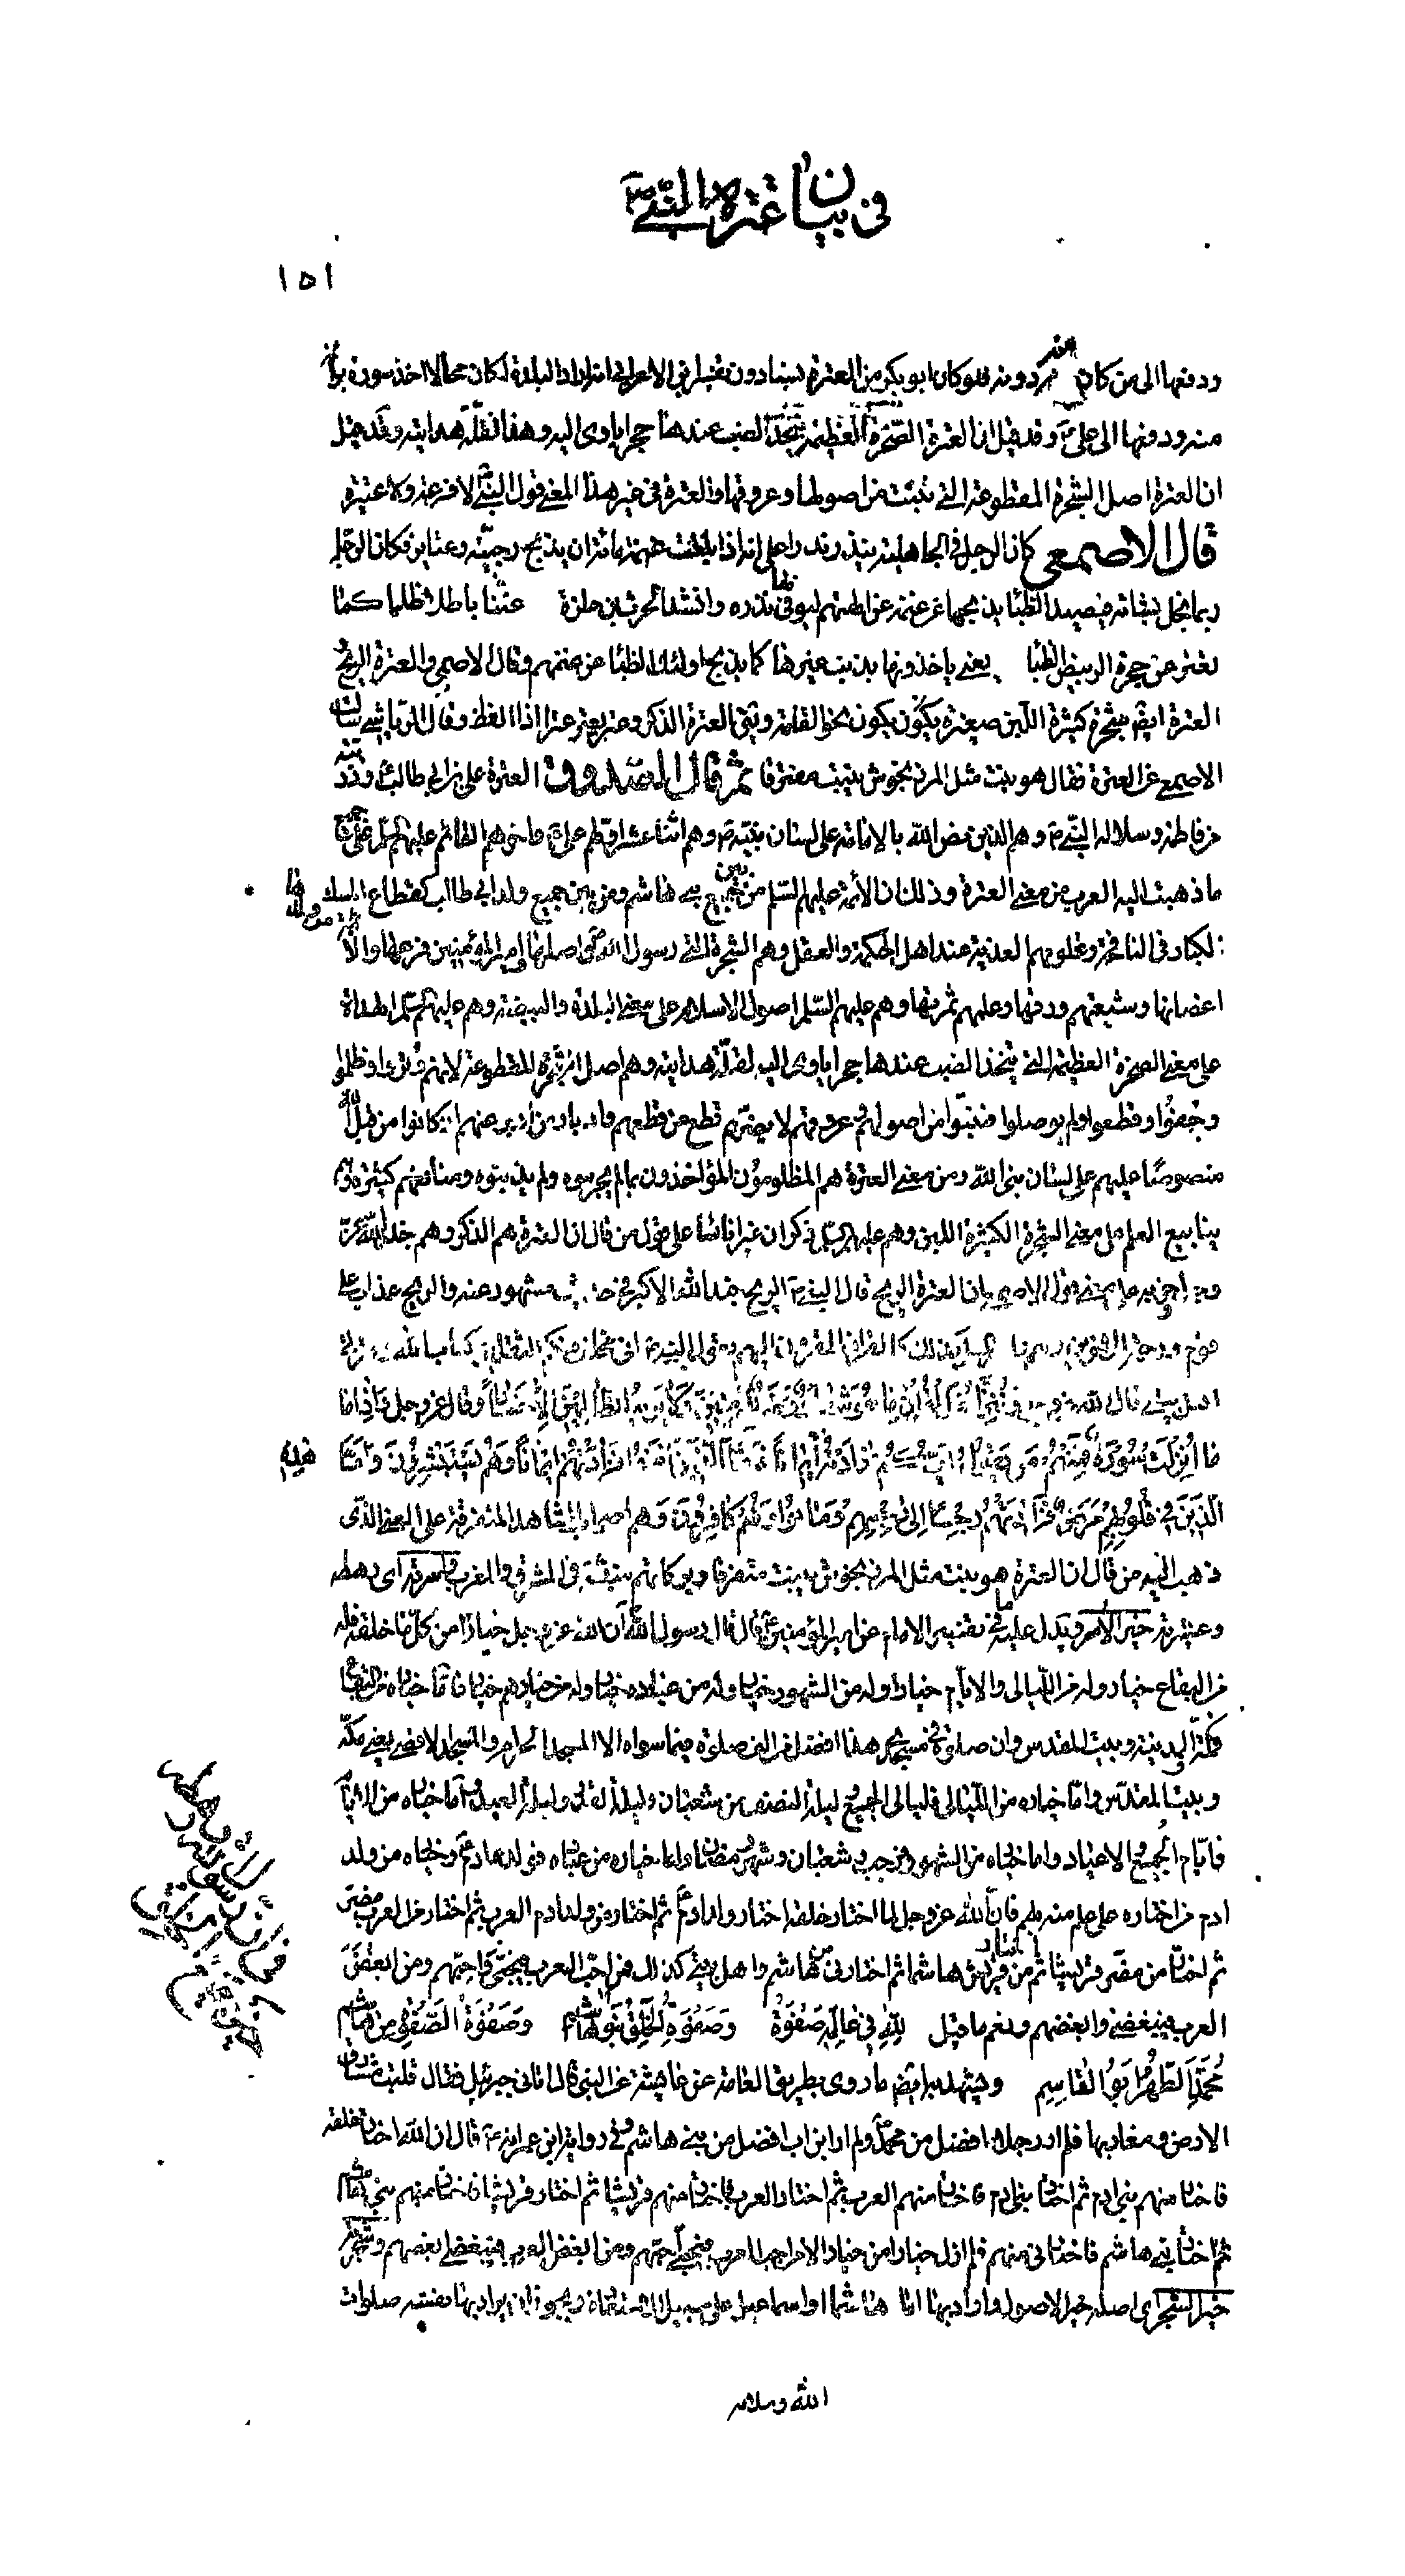 في بيان عترة النبي ص
١٥١
ودفعها الى من كان عنده دونه فلو كان ابو بكر من العترة نسبا دون تفسير ابن الاعرابي انه اراد البلدة لكان محالا اخذ سورة براءة
منه ودفعها الى علي ع وقد قيل ان العترة الصخرة العظيمة يتخذ الضب عندها جحرا ياوي اليه وهذا لقلة هدايته وقد قيل
ان العترة اصل الشجرة المقطوعة التي تنبت من اصولها وعروقها والعترة في غير هذا المعنى قول النبي ص لا فرعة ولا عتيرة
قال الاصمعي كان الرجل في الجاهلية ينذر نذرا على انه اذا بلغت غنمه مائة ان يذبح رجبيته وعتايره فكان الرجل
ربما بخل بشاته فيصيد الظباء يذبحها عن غنمه عن الهتهم ليوفي بها نذره وانشد الحرث بن حلزة عنتا باطلا وظلما كما
تعتر عن حجرة الربيض الظباء يعني ياخذونها بذنب غيرها كما يذبح اولئك الظباء عن غنمهم وقال الاصمعي والعترة الريح
العترة ايضا شجرة كثيرة اللبن صغيرة يكون نحو القامة ويقال العترة الذكر وعتر يعتر عترا اذا انعظ وقال الرياشي سالت
الاصمعي عن العترة فقال هو نبت مثل المرزنجوش ينبت متفرقا ثم قال الصدوق العترة علي بن ابي طالب ع وذريته
من فاطمة وسلالة النبي ص وهم الذين نص الله بالامامة على لسان نبيه ص وهم اثنا عشر اولهم علي ع واخرهم القائم عليهم السلم على جميع
ما ذهبت اليه العرب من معنى العترة وذلك ان الائمة عليهم السلم من بين جميع بني هاشم ومن بين جميع ولد ابي طالب كقطاع المسك
الكبار في النافجة وعلومهم العذبة عند اهل الحكمة والعقل وهم الشجرة التي رسول الله ص اصلها وامير المؤمنين فرعها والائمة من ولده
اغصانها وشيعتهم ورقها وعلمهم ثمرتها وهم عليهم السلم اصول الاسلام على معنى البلدة والبيضة وهم عليهم السلم الهداة
على معنى الصخرة العظيمة التي يتخذ الضب عندها جحرا ياوي اليه لقلة هدايته وهم اصل الشجرة المقطوعة لانهم وتروا وظلموا
وجفوا وقطعوا ولم يوصلوا فنبتوا من اصولهم وعروقهم لا يضرهم قطع من قطعهم وادبار من ادبر عنهم اذ كانوا من قبل الله
منصوصا عليهم على لسان نبي الله ومن معنى العترة هم المظلومون المؤاخذون بما لم يجرموه ولم يذنبوه ومنافعهم كثيرة وهم
ينابيع العلم على معنى الشجرة الكثيرة اللبن وهم عليهم السلم ذكران غير اناث على قول من قال ان العترة هم الذكر وهم جند الله عز
وجل وحزبه على معنى قول الاصمعي ان العترة الريح قال النبي ص الريح جند الله الاكبر في حديث مشهور عنه والريح عذاب على
قوم ورحمة لاخرين وهم عليهم السلم كذلك كالقران المقرون اليهم بقول النبي ص اني مخلف فيكم الثقلين كتاب الله وعترتي
اهل بيتي قال الله عز وجل وننزل من القران ما هو شفاء ورحمة للمؤمنين ولا يزيد الظالمين الا خسارا وقال عز وجل واذا ما
ما انزلت سورة فمنهم من يقول ايكم زادته هذه ايمانا فاما الذين امنوا فزادتهم ايمانا وهم يستبشرون واما
الذين في قلوبهم مرض فزادتهم رجسا الى رجسهم وماتوا وهم كافرون وهم اصحاب المشاهد المتفرقة على المعنى الذي
ذهب اليه من قال ان العترة هو نبت مثل المرزنجوش ينبت متفرقا وبركاتهم منبثة في المشرق والمغرب واسرته اي رهطه
وعشيرته خير الاسر ويدل عليه ما في تفسير الامام عن امير المؤمنين ع قال قال رسول الله ص ان الله عز وجل خيارا من كل ما خلقه فله
من البقاع خيار وله من الليالي والايام خيار وله من الشهور خيار وله من عباده خيار وله من خيارهم خيار فاما خياره من البقاع
فمكة والمدينة وبيت المقدس وان صلوة في مسجدي هذا افضل من الف صلوة فيما سواه الا المسجد الحرام والمسجد الاقصى يعني مكة
وبيت المقدس واما خياره من الليالي فليالي الجمع وليلة النصف من شعبان وليلة القدر وليلتا العيد واما خياره من الايام
فايام الجمع والاعياد واما خياره من الشهور فرجب وشعبان وشهر رمضان واما خياره من عباده فولد ادم ع وخياره من ولد
ادم من اختاره على علم منه بهم فان الله عز وجل لما اختار خلقه اختار ولد ادم ع ثم اختار من ولد ادم العرب ثم اختار من العرب مضر
ثم اختار من مضر قريشا ثم اختار من قريش هاشما ثم اختارني من هاشم واهل بيتي كذلك فمن احب العرب فبحبي فاحبهم ومن ابغض
العرب فببغضي وابغضهم ونعم ما قيل لله في عالمه صفوة وصفوة الخلق بنو هاشم وصفوة الصفوة من هاشم
محمد الطهر ابو القاسم ويشهد به ايضا ما روي بطريق العامة عن عايشة عن النبي قال اتاني جبرئيل فقال قلبت مشارق
الارض ومغاربها فلم ار رجلا افضل من محمد ص ولم ار ابن اب افضل من بني هاشم وفي رواية ابن عمر انه ص قال ان الله اختار خلقه
فاختار منهم بني ادم ثم اختار بني ادم فاختار منهم العرب ثم اختار العرب فاختار منهم قريشا ثم اختار قريشا فاختار منهم بني هاشم
ثم اختار بني هاشم فاختارني منهم فلم ازل خيارا من خيار الا من احب العرب فبحبي احبهم ومن ابغض العرب فببغضي ابغضهم وشجرته
خير الشجر اي اصله خير الاصول والمراد بها اما هاشما او اسماعيل على سبيل الاستعارة ويجوز ان يراد بها نفسه صلوات
الله وسلامه